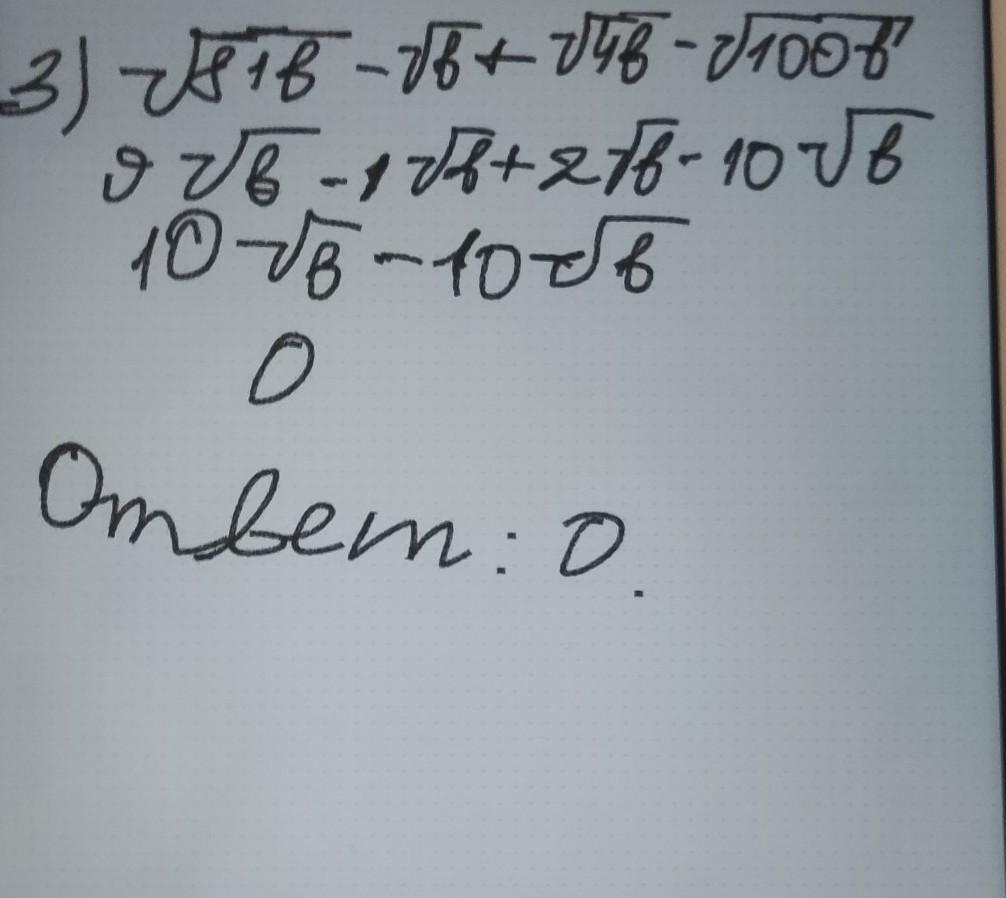 3) √81в - √в + √4в - √100в
9√в - 1√в + 2√в - 10√в
10√в - 10√в
0
Ответ: 0.